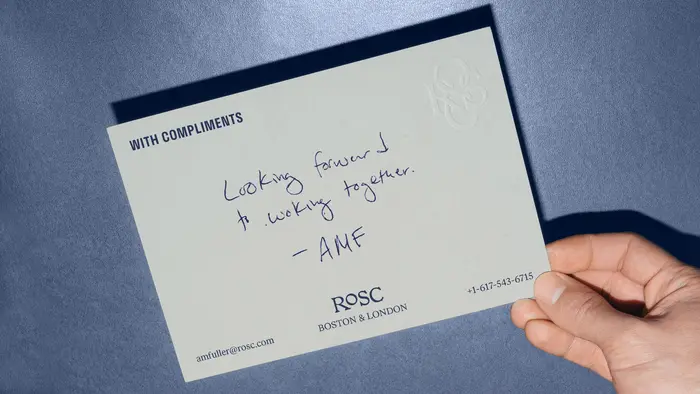 WITH COMPLIMENTS
Looking forward
to woking together.
– AMF
ROSC
BOSTON & LONDON
amfuller@rosc.com
+1-617-543-6715